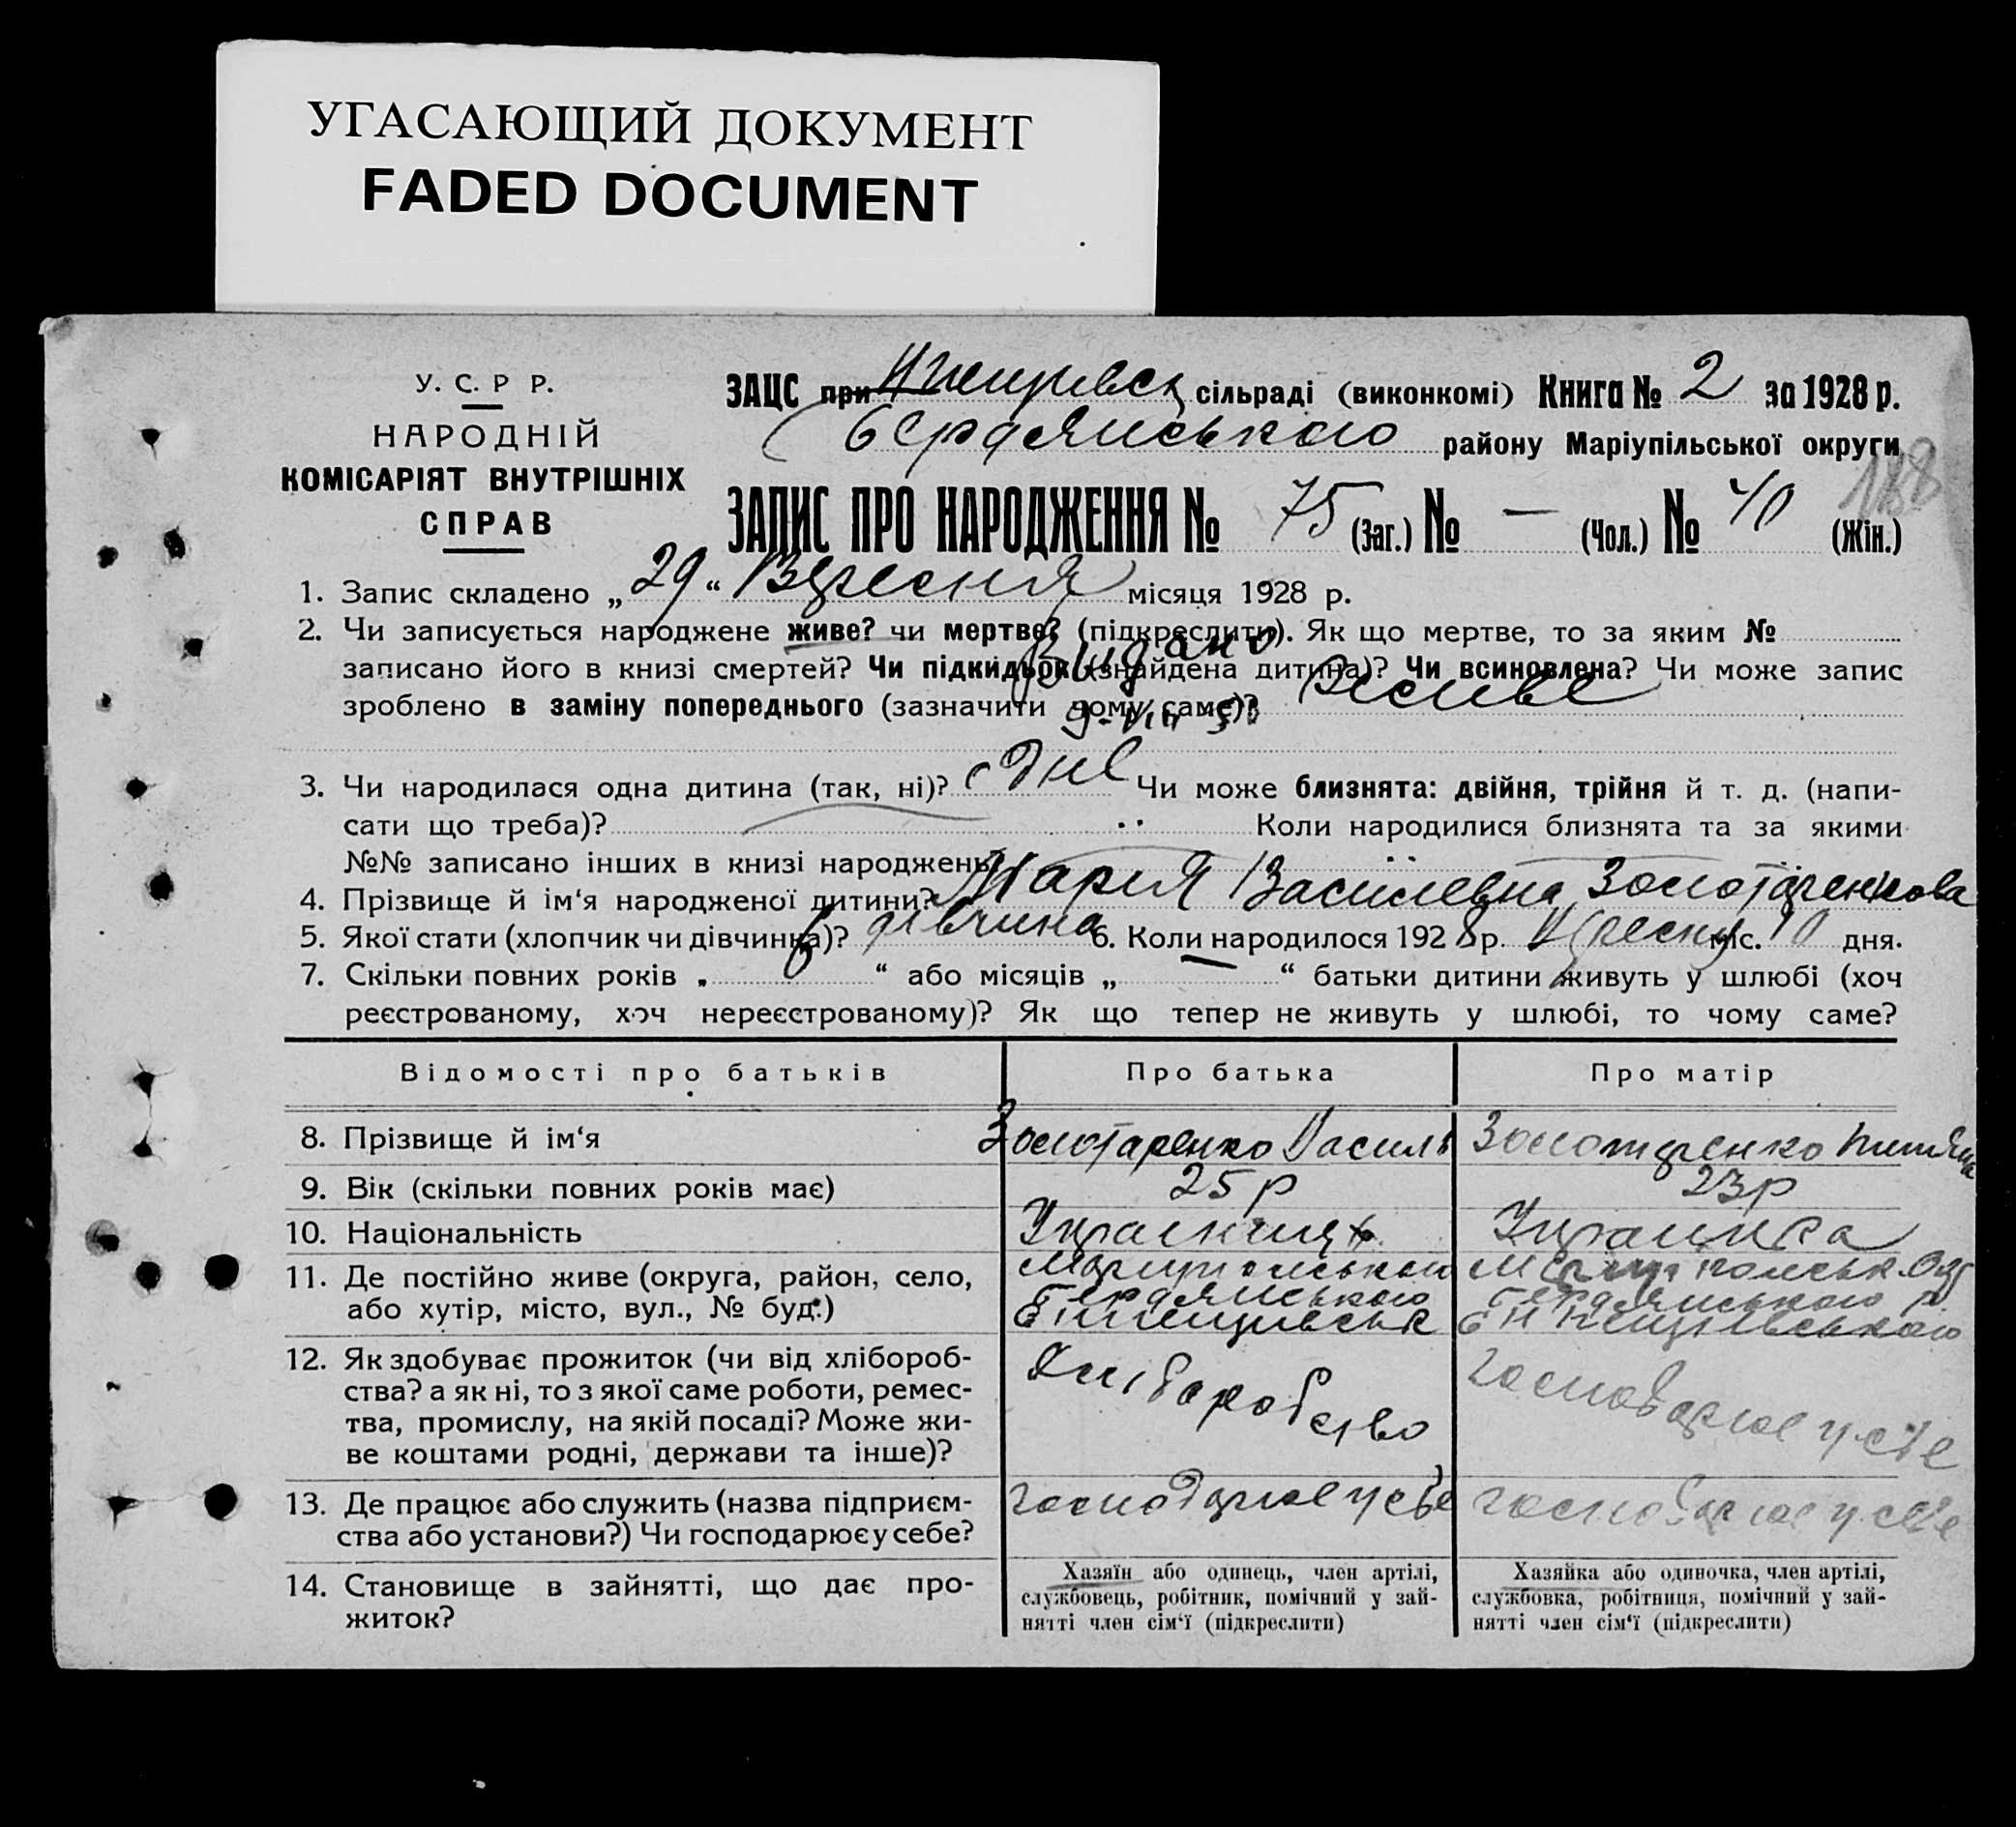 УГАСАЮЩИЙ ДОКУМЕНТ
FADED DOCUMENT
У. С. Р Р.
НАРОДНІЙ
КОМІСАРІЯТ ВНУТРІШНІХ
СПРАВ
ЗАЦС при сільраді (виконкомі) Книга № 2 за 1928 р.
Бердянського району Маріупільської округи
188
ЗАПИС ПРО НАРОДЖЕННЯ № 75 (Заг.) № — (Чол.) № 40 (Жін.)
1. Запис складено „29“ Вересня місяця 1928 р.
2. Чи записується народжене живе? чи мертве? (підкреслити). Як що мертве, то за яким №
Видано
записано його в книзі смертей? Чи підкидьок (знайдена дитина)? Чи всиновлена? Чи може запис
зроблено в заміну попереднього (зазначити чому саме)? живе
3. Чи народилася одна дитина (так, ні)? одне Чи може близнята: двійня, трійня й т. д. (напи-
сати що треба)? Коли народилися близнята та за якими
№№ записано інших в книзі народжень
4. Прізвище й ім‘я народженої дитини? Мария Василевна Золотаренкова
5. Якої стати (хлопчик чи дівчинка)? дівчина 6. Коли народилося 1928 р. Вересня міс. 10 дня.
7. Скільки повних років „ 6 “ або місяців „ — “ батьки дитини живуть у шлюбі (хоч
реєстрованому, хоч нереєстрованому)? Як що тепер не живуть у шлюбі, то чому саме?
Відомості про батьків Про батька Про матір
8. Прізвище й ім‘я Золотаренко Василь Золотаренко
9. Вік (скільки повних років має) 25 р 23 р
10. Національність Украинка
11. Де постійно живе (округа, район, село,
або хутір, місто, вул., № буд.) Бердянського Бердянського р.
12. Як здобуває прожиток (чи від хлібороб-
ства? а як ні, то з якої саме роботи, ремес-
тва, промислу, на якій посаді? Може жи-
ве коштами родні, держави та інше)? Хліборобство господарює у себе
13. Де працює або служить (назва підприєм-
ства або установи?) Чи господарює у себе? господарює у себе господарює у себе
14. Становище в зайнятті, що дає про-
житок?
Хазяїн або одинець, член артілі,
службовець, робітник, помічний у зай-
нятті член сім‘ї (підкреслити)
Хазяйка або одиночка, член артілі,
службовка, робітниця, помічний у зай-
нятті член сім‘ї (підкреслити)